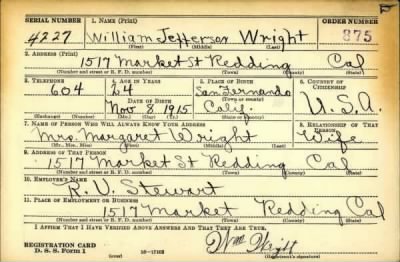 SERIAL NUMBER 1. NAME (Print) ORDER NUMBER
4227 William Jefferson Wright 875
(First) (Middle) (Last)
2. ADDRESS (Print)
1517 Market St Redding Cal
(Number and street or R. F. D. number) (Town) (County) (State)
3. TELEPHONE 4. AGE IN YEARS 5. PLACE OF BIRTH 6. COUNTRY OF CITIZENSHIP
604 24 San Fernando
DATE OF BIRTH (Town or county)
Nov 8 1915 Calif. U.S.A.
(Exchange) (Number) (Mo.) (Day) (Yr.) (State or country)
7. NAME OF PERSON WHO WILL ALWAYS KNOW YOUR ADDRESS 8. RELATIONSHIP OF THAT PERSON
Mrs. Margaret Wright Wife
(Mr., Mrs., Miss) (First) (Middle) (Last)
9. ADDRESS OF THAT PERSON
1517 Market St Redding Cal
(Number and street or R. F. D. number) (Town) (County) (State)
10. EMPLOYER'S NAME
R. V. Stewart
11. PLACE OF EMPLOYMENT OR BUSINESS
1517 Market Redding Cal
(Number and street or R. F. D. number) (Town) (County) (State)
I AFFIRM THAT I HAVE VERIFIED ABOVE ANSWERS AND THAT THEY ARE TRUE.
REGISTRATION CARD Wm Wright
D. S. S. Form 1 (over) (Registrant's signature)